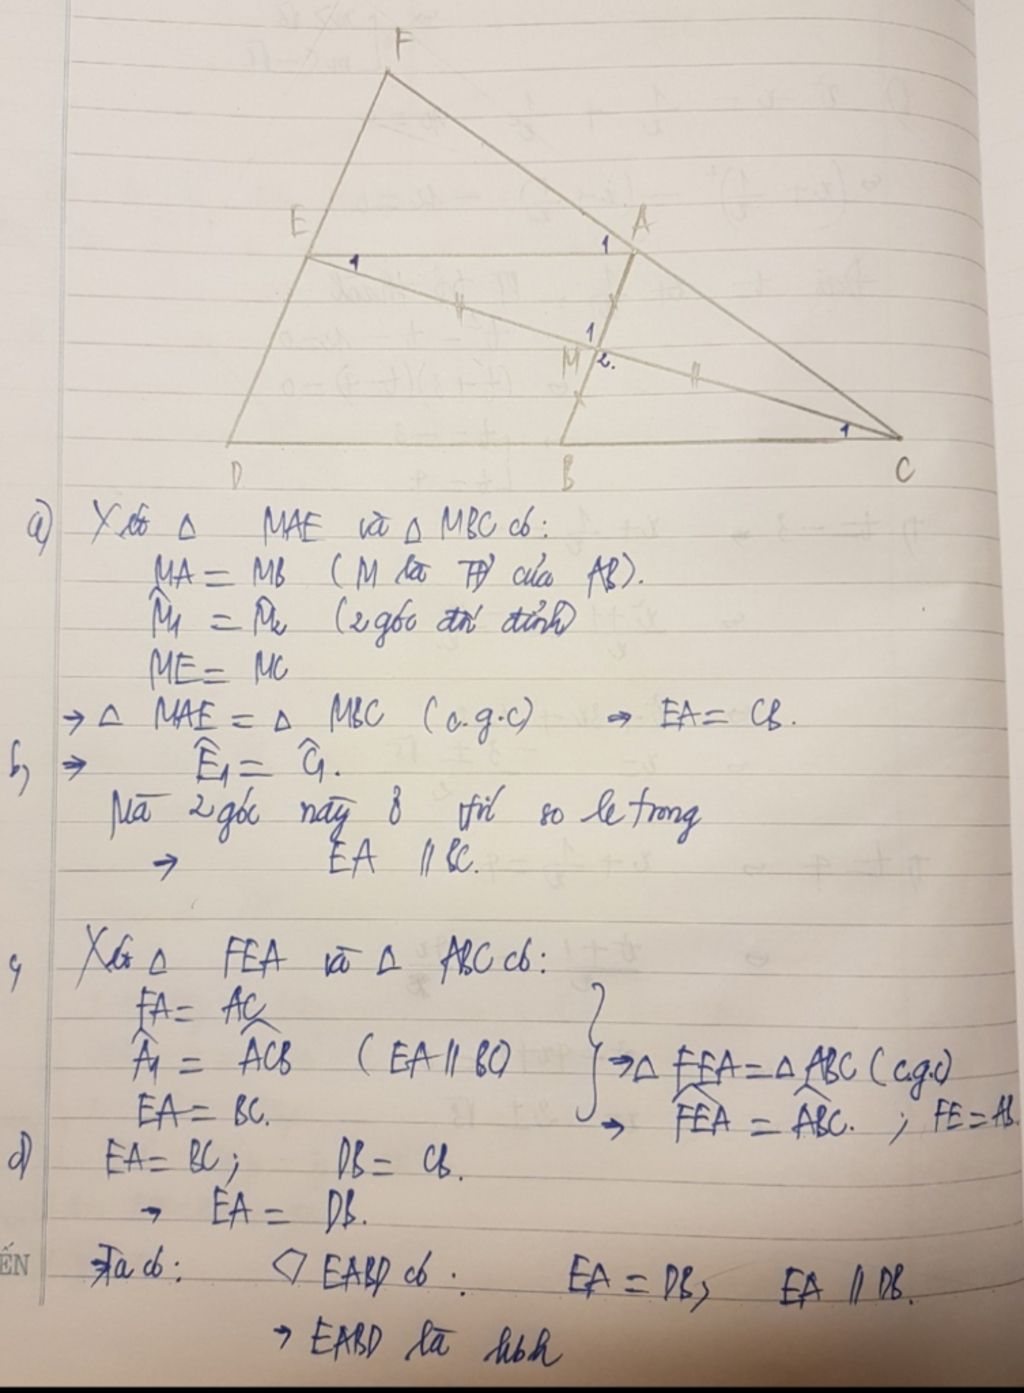 F
E
A
1
1
1
M
2.
1
D
B
C
a) Xét Δ MAE và Δ MBC có:
MA = MB (M là TĐ của AB).
M̂₁ = M̂₂ (2 góc đối đỉnh)
ME = MC
→ Δ MAE = Δ MBC (c.g.c) → EA = CB.
b) → Ê₁ = Ĉ₁.
Mà 2 góc này ở vị trí so le trong
→ EA // BC.
c) Xét Δ FEA và Δ ABC có:
FA = AC
Â₁ = ACB (EA // BC) → Δ FEA = Δ ABC (c.g.c)
EA = BC. → FEA = ABC. ; FE = AB.
d) EA = BC; DB = CB.
→ EA = DB.
ẾN
→ Ta có: ◇ EABD có: EA = DB; EA // DB.
→ EABD là hbh